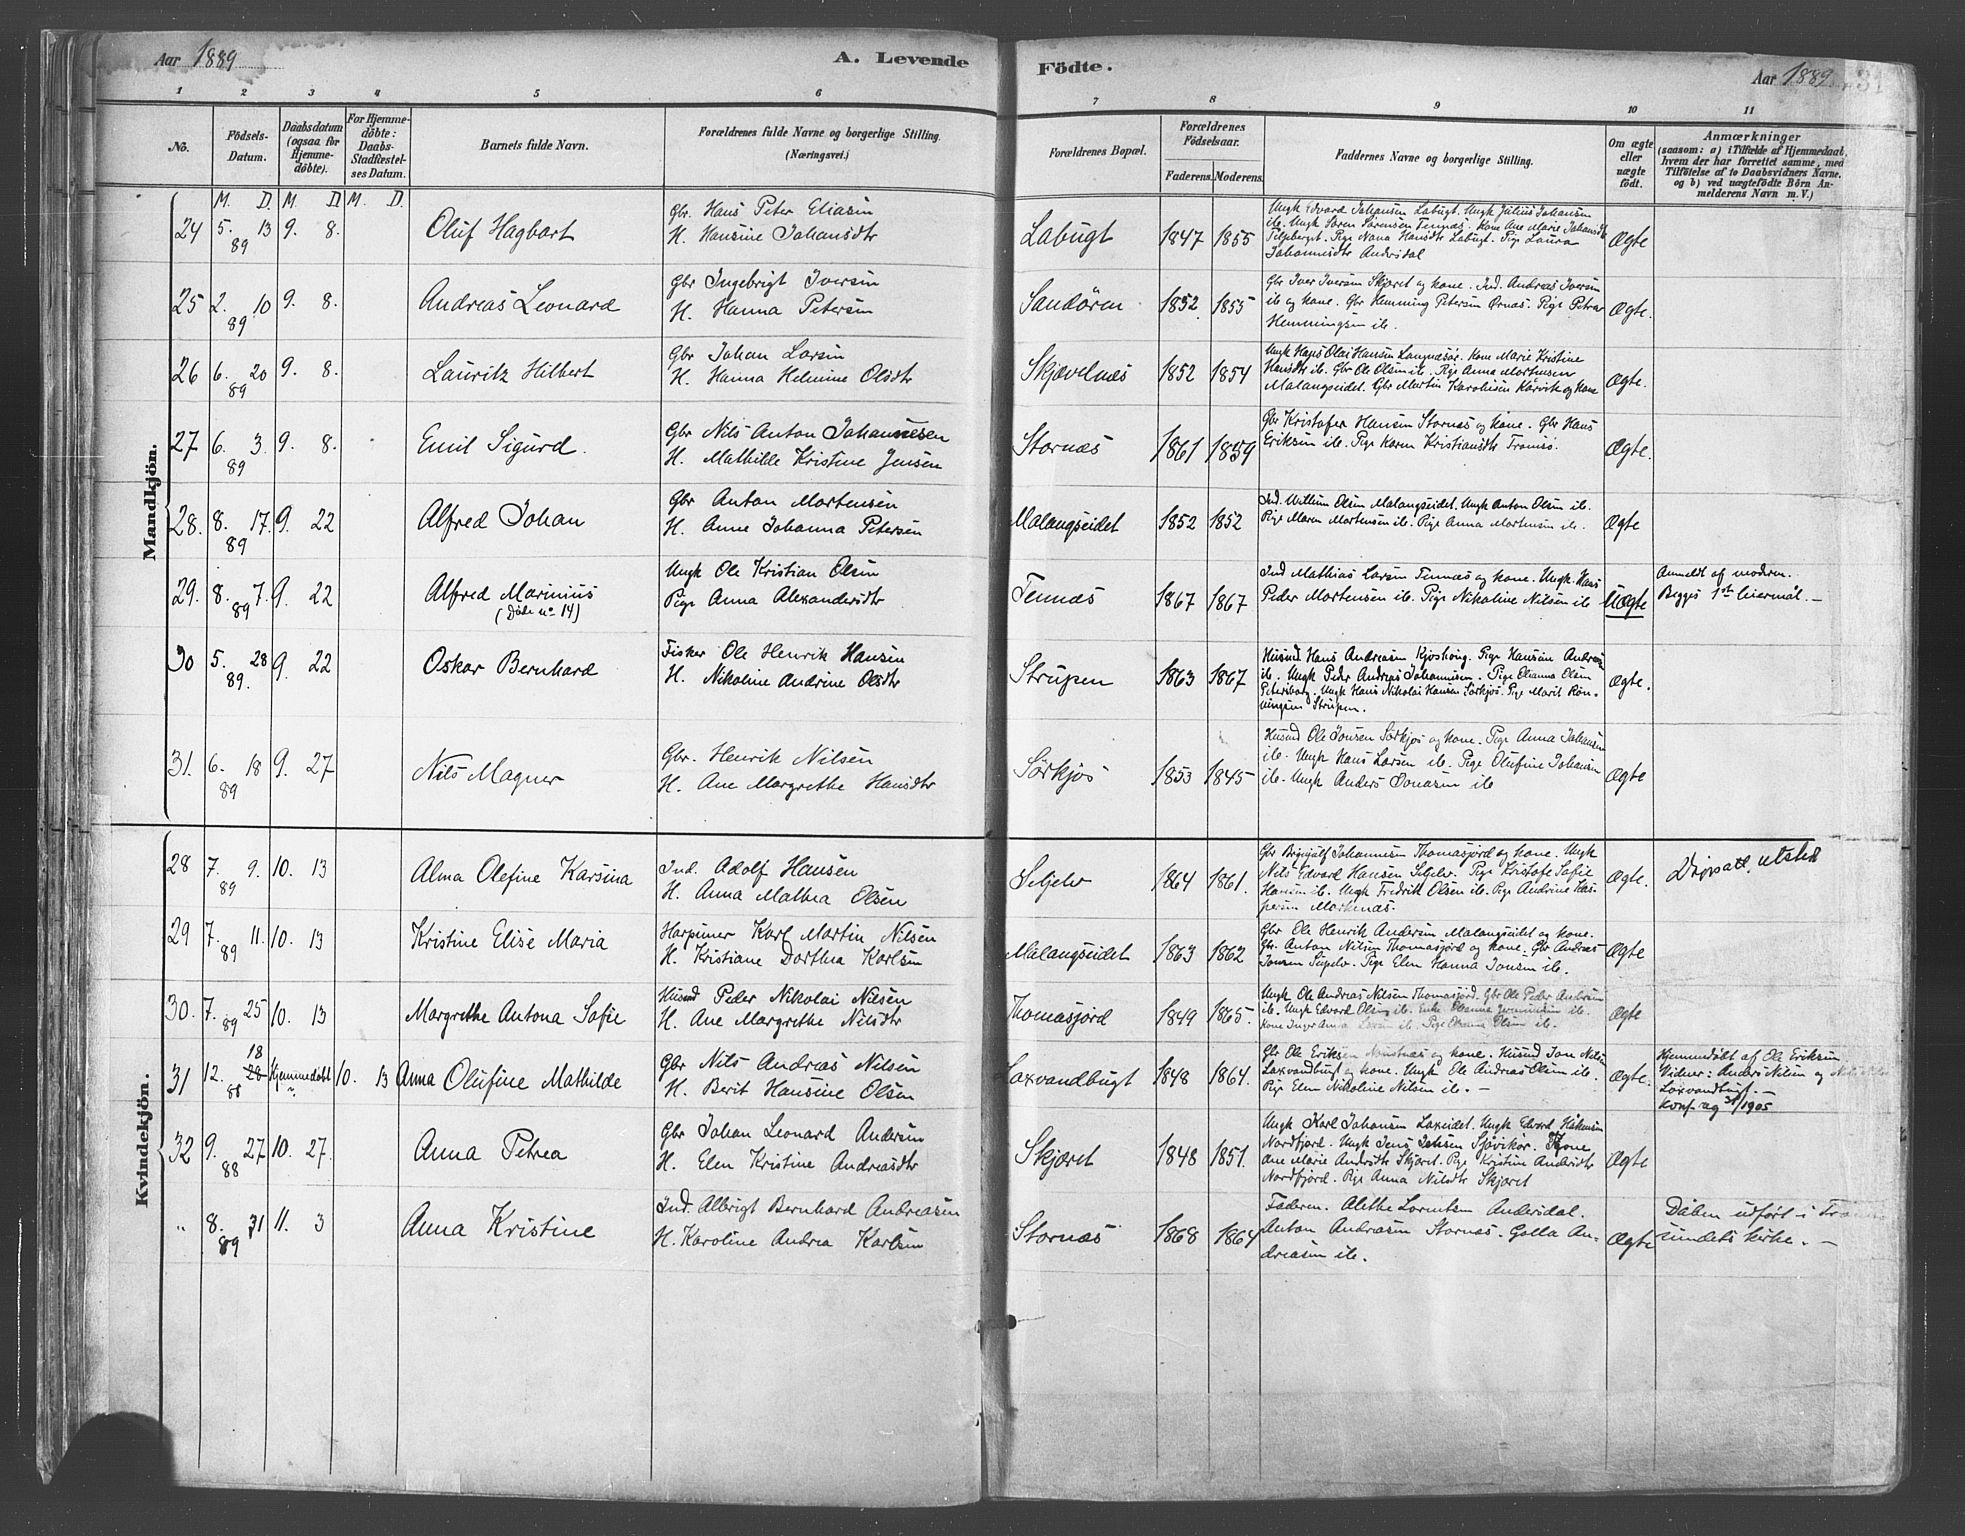 Aar 1889
A. Levende
Födte.
Aar 1889
1 2 3 4 5 6 7 8 9 10 11
No.
Födsels-Datum.
Daabsdatum (ogsaa for Hjemme-döbte).
For Hjemme-döbte: Daabs-Stadfæstel-ses Datum.
Barnets fulde Navn.
Forældrenes fulde Navne og borgerlige Stilling. (Næringsvei.)
Forældrenes Bopæl.
Forældrenes Födselsaar.
Faderens. Moderens.
Faddernes Navne og borgerlige Stilling.
Om ægte eller uægte födt.
Anmærkninger
(saasom: a) i Tilfælde af Hjemmedaab,
hvem der har forrettet samme, med
Tilföielse af to Daabsvidners Navne,
og b) ved uægtefödte Börn An-
melderens Navn m. V.)
M. D. M. D. M. D.
Mandkjön.
24 5. 13 89 9. 8. Oluf Hagbart
Gbr. Hans Peter Eliasen
H. Hansine Johansdtr
Labugt 1847 1855
Ungk Edvard Johansen Labugt. Ungk Julius Johansen
ib. Ungk Sören Sörensen Tennæs. Kone Ane Marie Johansdtr
Pige Nana Hansdtr Labugt. Pige Laura
Johannesdtr Andersdal
Ægte
25 2. 10 89 9. 8. Andreas Leonard
Gbr Ingebrigt Iversen
H. Hanna Petersen
Sandören 1852. 1855
Gbr Iver Iversen Skjæret og kone. Ind. Andreas Iversen
ib og kone. Gbr Hemming Petersen Örnæs. Pige Petra
Hemmingsen ib.
Ægte.
26 6. 20 89 9. 8. Lauritz Hilbert
Gbr Johan Larsen
H. Hanna Helmine Olsdtr
Skjævelnæs 1852 1854
Ungk Hans Olai Hansen Langnæsör. Kone Marie Kristine
Hansdtr ib. Gbr Ole Olsen ib. Pige Anna Mortensen
Malangseidet. Gbr Martin Karolinsen Kårvik og kone
Ægte.
27 6. 3. 89 9. 8. Emil Sigurd.
Gbr Nils Anton Johannesen
H. Mathilde Kristine Jensen
Stornæs 1861 1859
Gbr Kristofer Hansen Stornæs og kone. Gbr Hans
Eriksen ib. Pige Karen Kristiansdtr Tromsö.
Ægte.
28. 8. 17. 89 9. 22 Alfred Johan
Gbr Anton Mortensen
H. Anne Johanna Petersen
Malangseidet 1852 1852
Olsen Malangseidet. Ungk Anton Olsen ib.
Pige Maren Mortensen ib. Pige Anna Mortensen ib.
Ægte
29. 8. 7. 89 9. 22 Alfred Marinius
(Döde no 14)
Ungk Ole Kristian Olsen
Pige Anna Alexandersdtr
Tennæs 1867 1867
Ind Mathias Larsen Tennæs og kone. Ungk. Hans
Peder Mortensen ib. Pige Nikoline Nilsen ib
Uægte
Anmeldt af moderen.
Begges 1ste leiermål.
30 5. 28 89. 9. 22 Oskar Bernhard
Fisker Ole Henrik Hansen
H. Nikoline Andrine Olsdtr
Strupen 1863 1867
Husmd Hans Andreasen Pige Hansine
ib. Ungk Peder Andreas Johannesen. Pige Elianna Olsen
Petersborg. Ungk Hans Nikolai Hansen Sörkjos. Pige Marit Rön-
ningen Strupen.
Ægte.
31. 6. 18 89 9. 27 Nils Magner
Gbr. Henrik Nilsen
H. Ane Margrethe Hansdtr
Sörkjos 1853 1845
Husmd Ole Jonsen Sörkjos og kone. Pige Anna Johansen
ib. Ungk Hans Larsen ib. Pige Olufine Johansen
ib. Ungk Anders Jonasen ib
Ægte
Kvindekjön.
28 7. 9. 89 10. 13 Alma Olefine Karsina
Ind. Adolf Hansen
H. Anna Mathea Olsen
Seljelv 1864 1861.
Gbr Johannesen Thomasjord og kone. Ungk
Nils Edvard Hansen Seljelv. Pige Kristofe Sofie
Hansen ib. Ungk Fredrik Olsen ib. Pige Andrine Kas-
persen
Ægte.
utsted
29 7. 11. 89 10. 13 Kristine Elise Maria
Harpuner Karl Martin Nilsen
H. Kristiane Dorthea Karlsen
Malangseidet 1863 1862
Gbr Ole Henrik Andersen Malangseidet og kone.
Gbr. Anton Nilsen Thomasjord og kone. Gbr Andreas
Jonsen Pige Elen Hanna Jonsen ib.
Ægte
30. 7. 25 89 10. 13 Margrethe Antona Sofie
Husmd Peder Nikolai Nilsen
H. Ane Margrethe Nilsdtr
Thomasjord 1849 1865.
Ungk Ole Andreas Nilsen Thomasjord. Gbr Ole Peder Andersen
ib. Ungk Edvard Olsen ib. Enke Elianna ib.
Kone Inger Anna Larsen ib. Pige Olsen ib.
Ægte
31 12. 18 28 88 Hjemmedöbt 10. 13 Anna Olufine Mathilde
Gbr Nils Andreas Nilsen
H. Berit Hansine Olsen
Laxvandbugt 1848 1864.
Gbr Ole Eriksen og kone. Husmd Jon Nilsen
Laxvandbugt og kone. Ungk Ole Andreas Olsen ib.
Pige Elen Nikoline Nilsen ib.
Ægte.
Hjemmedöbt af Ole Eriksen
Vidner: Anders Nilsen og
Laxvandbugt.
Konf. 1905
32 9. 27 88 10. 27. Anna Petrea
Gbr Johan Leonard Andersen
H. Elen Kristine Andreasdtr
Skjæret 1848 1851.
Ungk Karl Johansen Laxeidet. Ungk Edvard Håkensen
Nordfjord. Ungk Jens Jensen Sjövikor. Kone
Ane Marie Andrsdtr Skjæret. Pige Kristine Andersdtr
Nordfjord. Pige Anna Nilsdtr Skjæret
Ægte
" 8. 31 89 11. 3 Anna Kristine
Ind. Albrigt Bernhard Andreasen
H. Karoline Andrea Karlsen
Stornæs 1868 1864
Faderen. Alethe Lorentsen Andersdal.
Anton Andreasen Stornæs. Golla An-
dreasen ib.
Ægte
Dåben udfört i
sundets kirke.